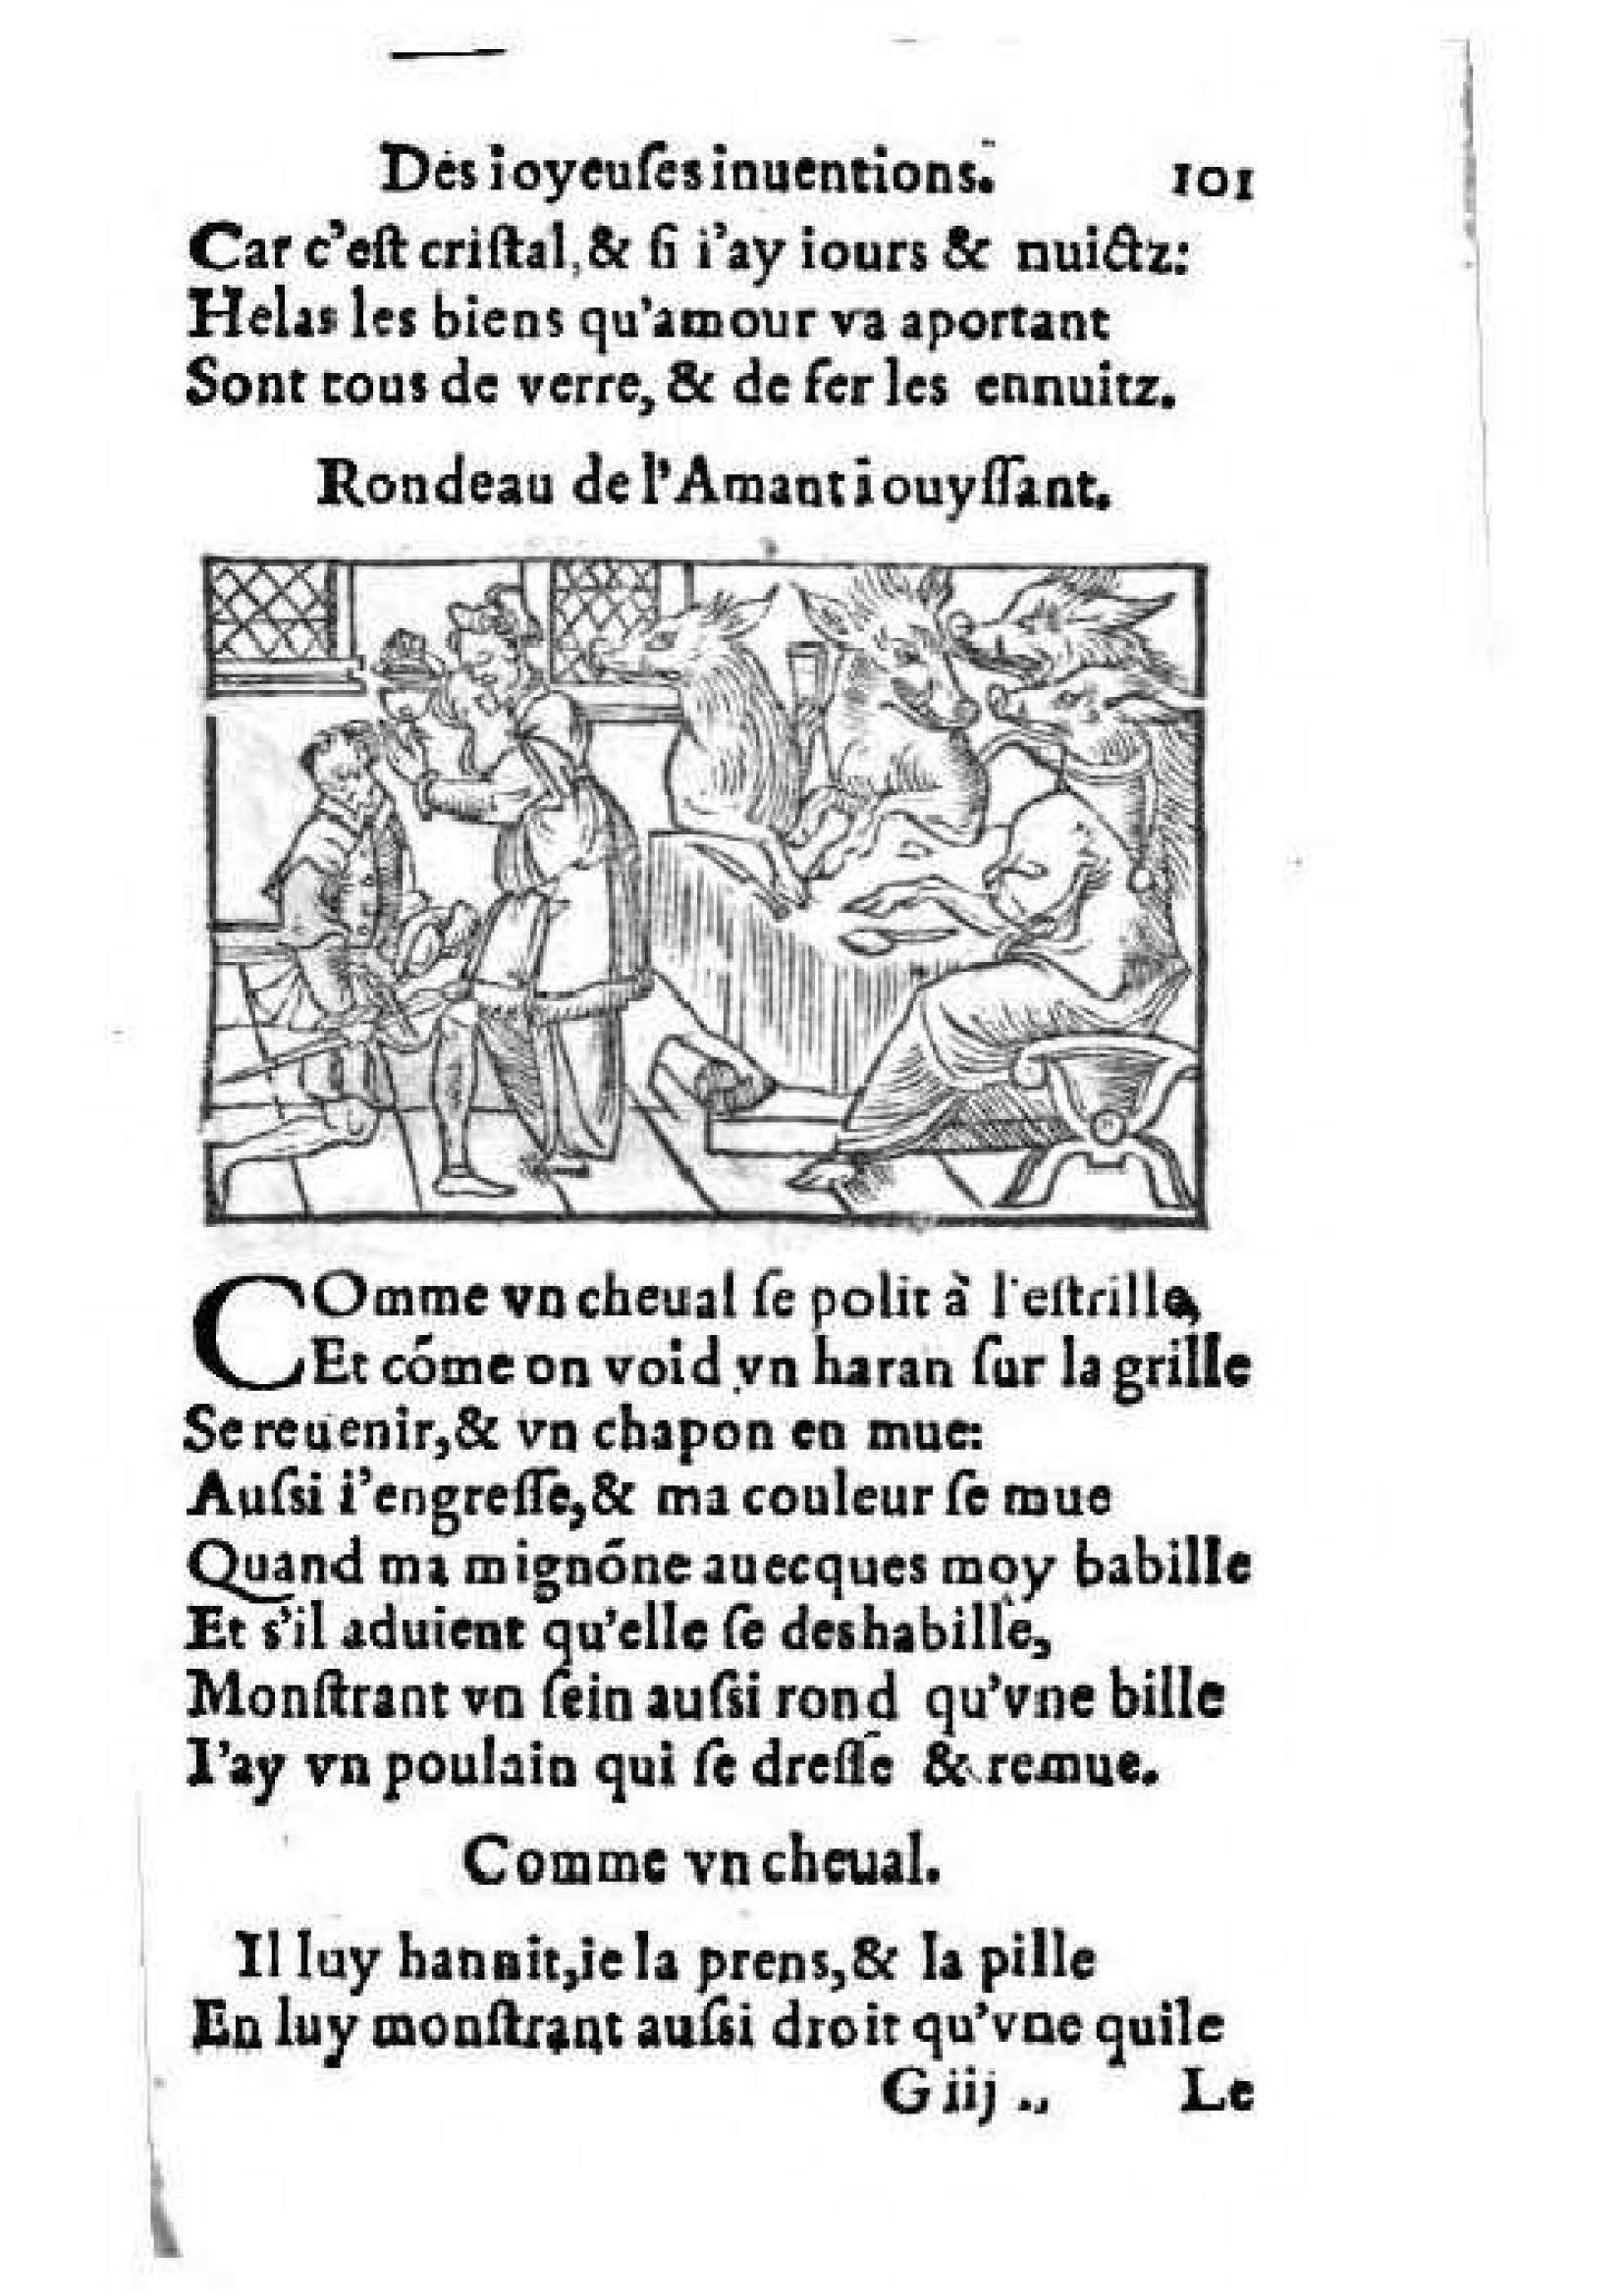 Des ioyeuſes inuentions. 101
Car c'eſt criſtal, & ſi i'ay iours & nuictz:
Helas les biens qu'amour va aportant
Sont tous de verre, & de fer les ennuitz.
Rondeau de l'Amant iouyſſant.
COmme vn cheual ſe polit à l'eſtrille,
Et cóme on void vn haran ſur la grille
Se reuenir, & vn chapon en mue:
Auſsi i'engreſſe, & ma couleur ſe mue
Quand ma mignóne auecques moy babille
Et s'il aduient qu'elle ſe deshabille,
Monſtrant vn ſein auſsi rond qu'vne bille
I'ay vn poulain qui ſe dreſſe & remue.
Comme vn cheual.
Il luy hannit, ie la prens, & la pille
En luy monſtrant auſsi droit qu'vne quile
G iij .. Le